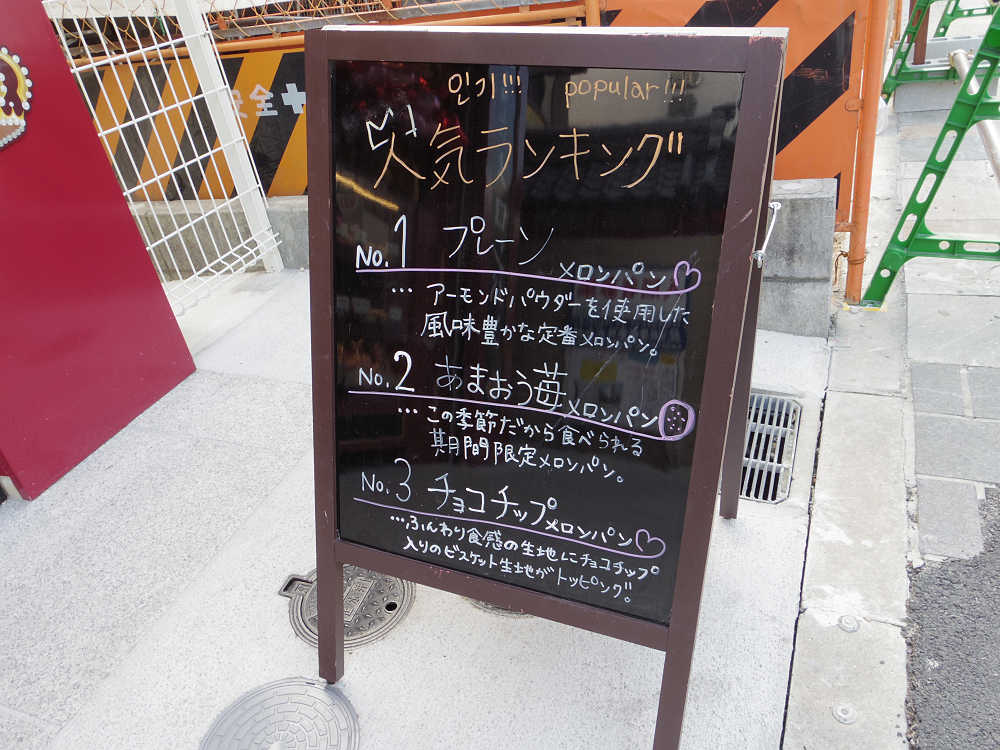 인기!!! popular!!!
人気ランキング
No.1 プレーン メロンパン
… アーモンドパウダーを使用した
風味豊かな定番メロンパン。
No.2 あまおう苺メロンパン
… この季節だから食べられる
期間限定メロンパン。
No.3 チョコチップメロンパン
…ふんわり食感の生地にチョコチップ
入りのビスケット生地がトッピング。
安全+